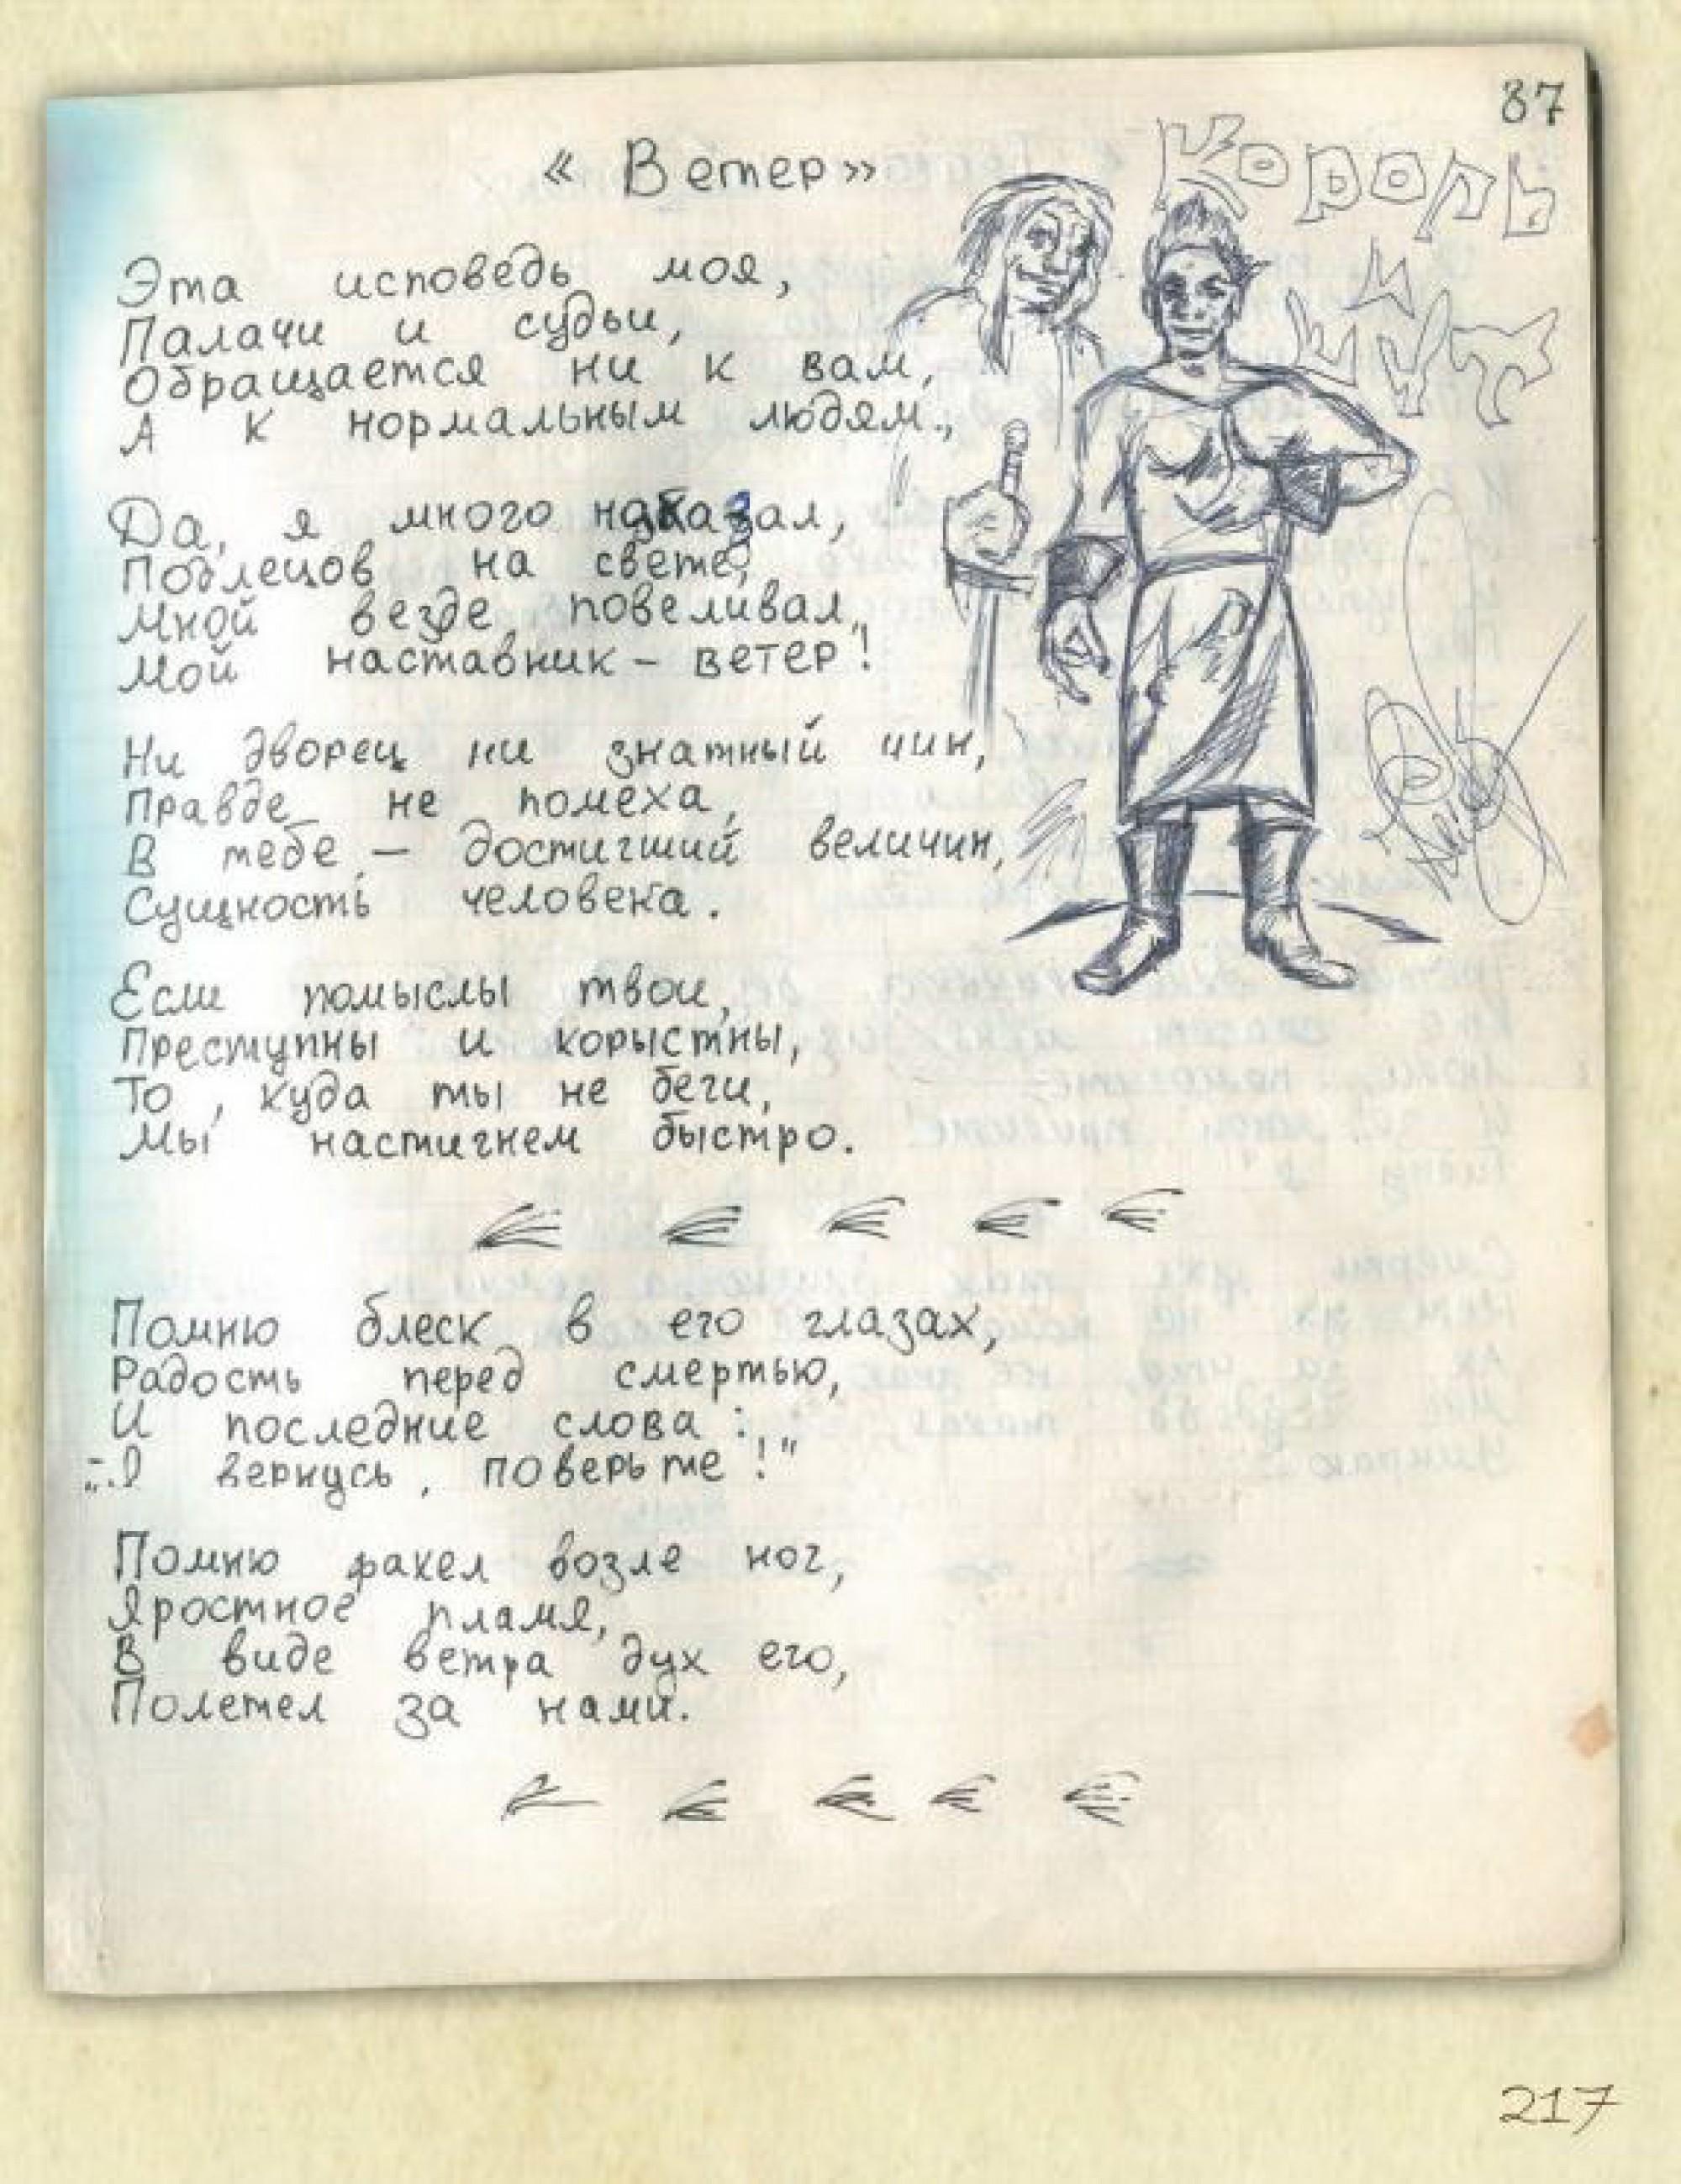 87
« Ветер»
Король
и
шут
Эта исповедь моя,
Палачи и судьи,
Обращается ни к вам,
А к нормальным людям.,
Да, я много наказал,
Подлецов на свете,
Мной везде повеливал,
Мой наставник – ветер!
Ни дворец ни знатный чин,
Правде не помеха,
В тебе – достигший величин,
Сущность человека.
Если помыслы твои,
Преступны и корыстны,
То, куда ты не беги,
Мы настигнем быстро.
Помню блеск в его глазах,
Радость перед смертью,
И последние слова :
„Я вернусь, поверьте!"
Помню факел возле ног,
Яростное пламя,
В виде ветра дух его,
Полетел за нами.
217